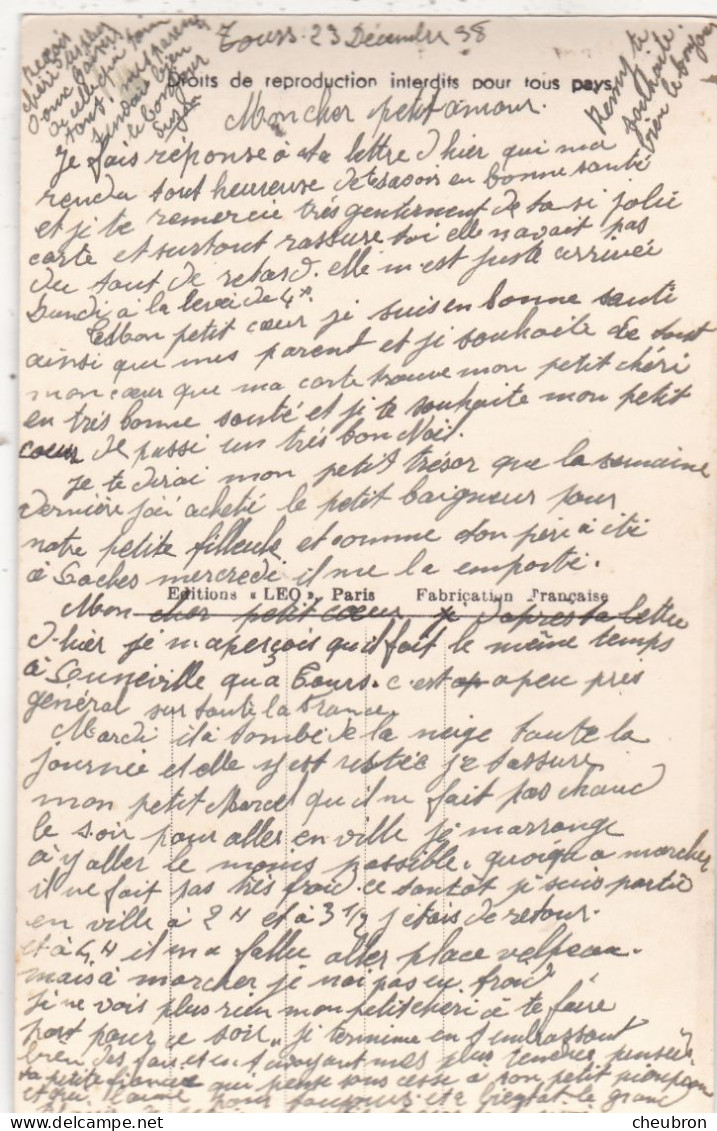 Tours 23 Décembre 38
Droits de reproduction interdits pour tous pays
Mon cher petit amour.
Je fais réponse à ta lettre d hier qui ma
rendu tout heureuse de te savoir en bonne santé
et je te remercie très gentiment de ta si jolie
carte et surtout rassure toi elle n avait pas
du tout de retard. elle m est juste arrivée
Lundi à la levée de 4 H.
Et bon petit cœur je suis en bonne santé
ainsi que mes parent et je souhaite de tout
mon cœur que ma carte trouve mon petit chéri
en très bonne santé et je te souhaite mon petit
cœur de passé un très bon Noël.
Je te dirai mon petit trésor que la semaine
dernière j'ai acheté le petit baigneur pour
notre petite filleule et comme ton père a été
à Loches mercredi il me la emporté.
Editions « LEO », Paris Fabrication Française
Mon cher petit cœur d'après ta lettre
d hier je m aperçois qu il fait le même temps
à Luneville qu a Tours. c est a peu près
général sur toute la France.
Mardi il a tombé de la neige toute la
journée et elle y est restée je t assure
mon petit Marcel qu il ne fait pas chaud
le soir pour aller en ville je m arrange
à y aller le moins possible. quoiqu a marcher
il ne fait pas très froid. ce tantôt je suis partie
en ville à 2 H et à 3 ½ j étais de retour.
et à 4 H il m a fallu aller place velpeau.
mais à marcher je n ai pas eu froid
Je ne vois plus rien mon petit chéri à te faire
part pour ce soir je termine en t embrassant
bien des fois et en t envoyant mes plus tendres pensées
ta petite fiancée qui pense sans cesse à son petit pioupiou
et qui l aime pour toujours et à bientôt le grand
Remy te
souhaite
bien le bonjour
Reçois
chéri
tous mes parents
te souhaite bien
le bonjour
cheubron.com